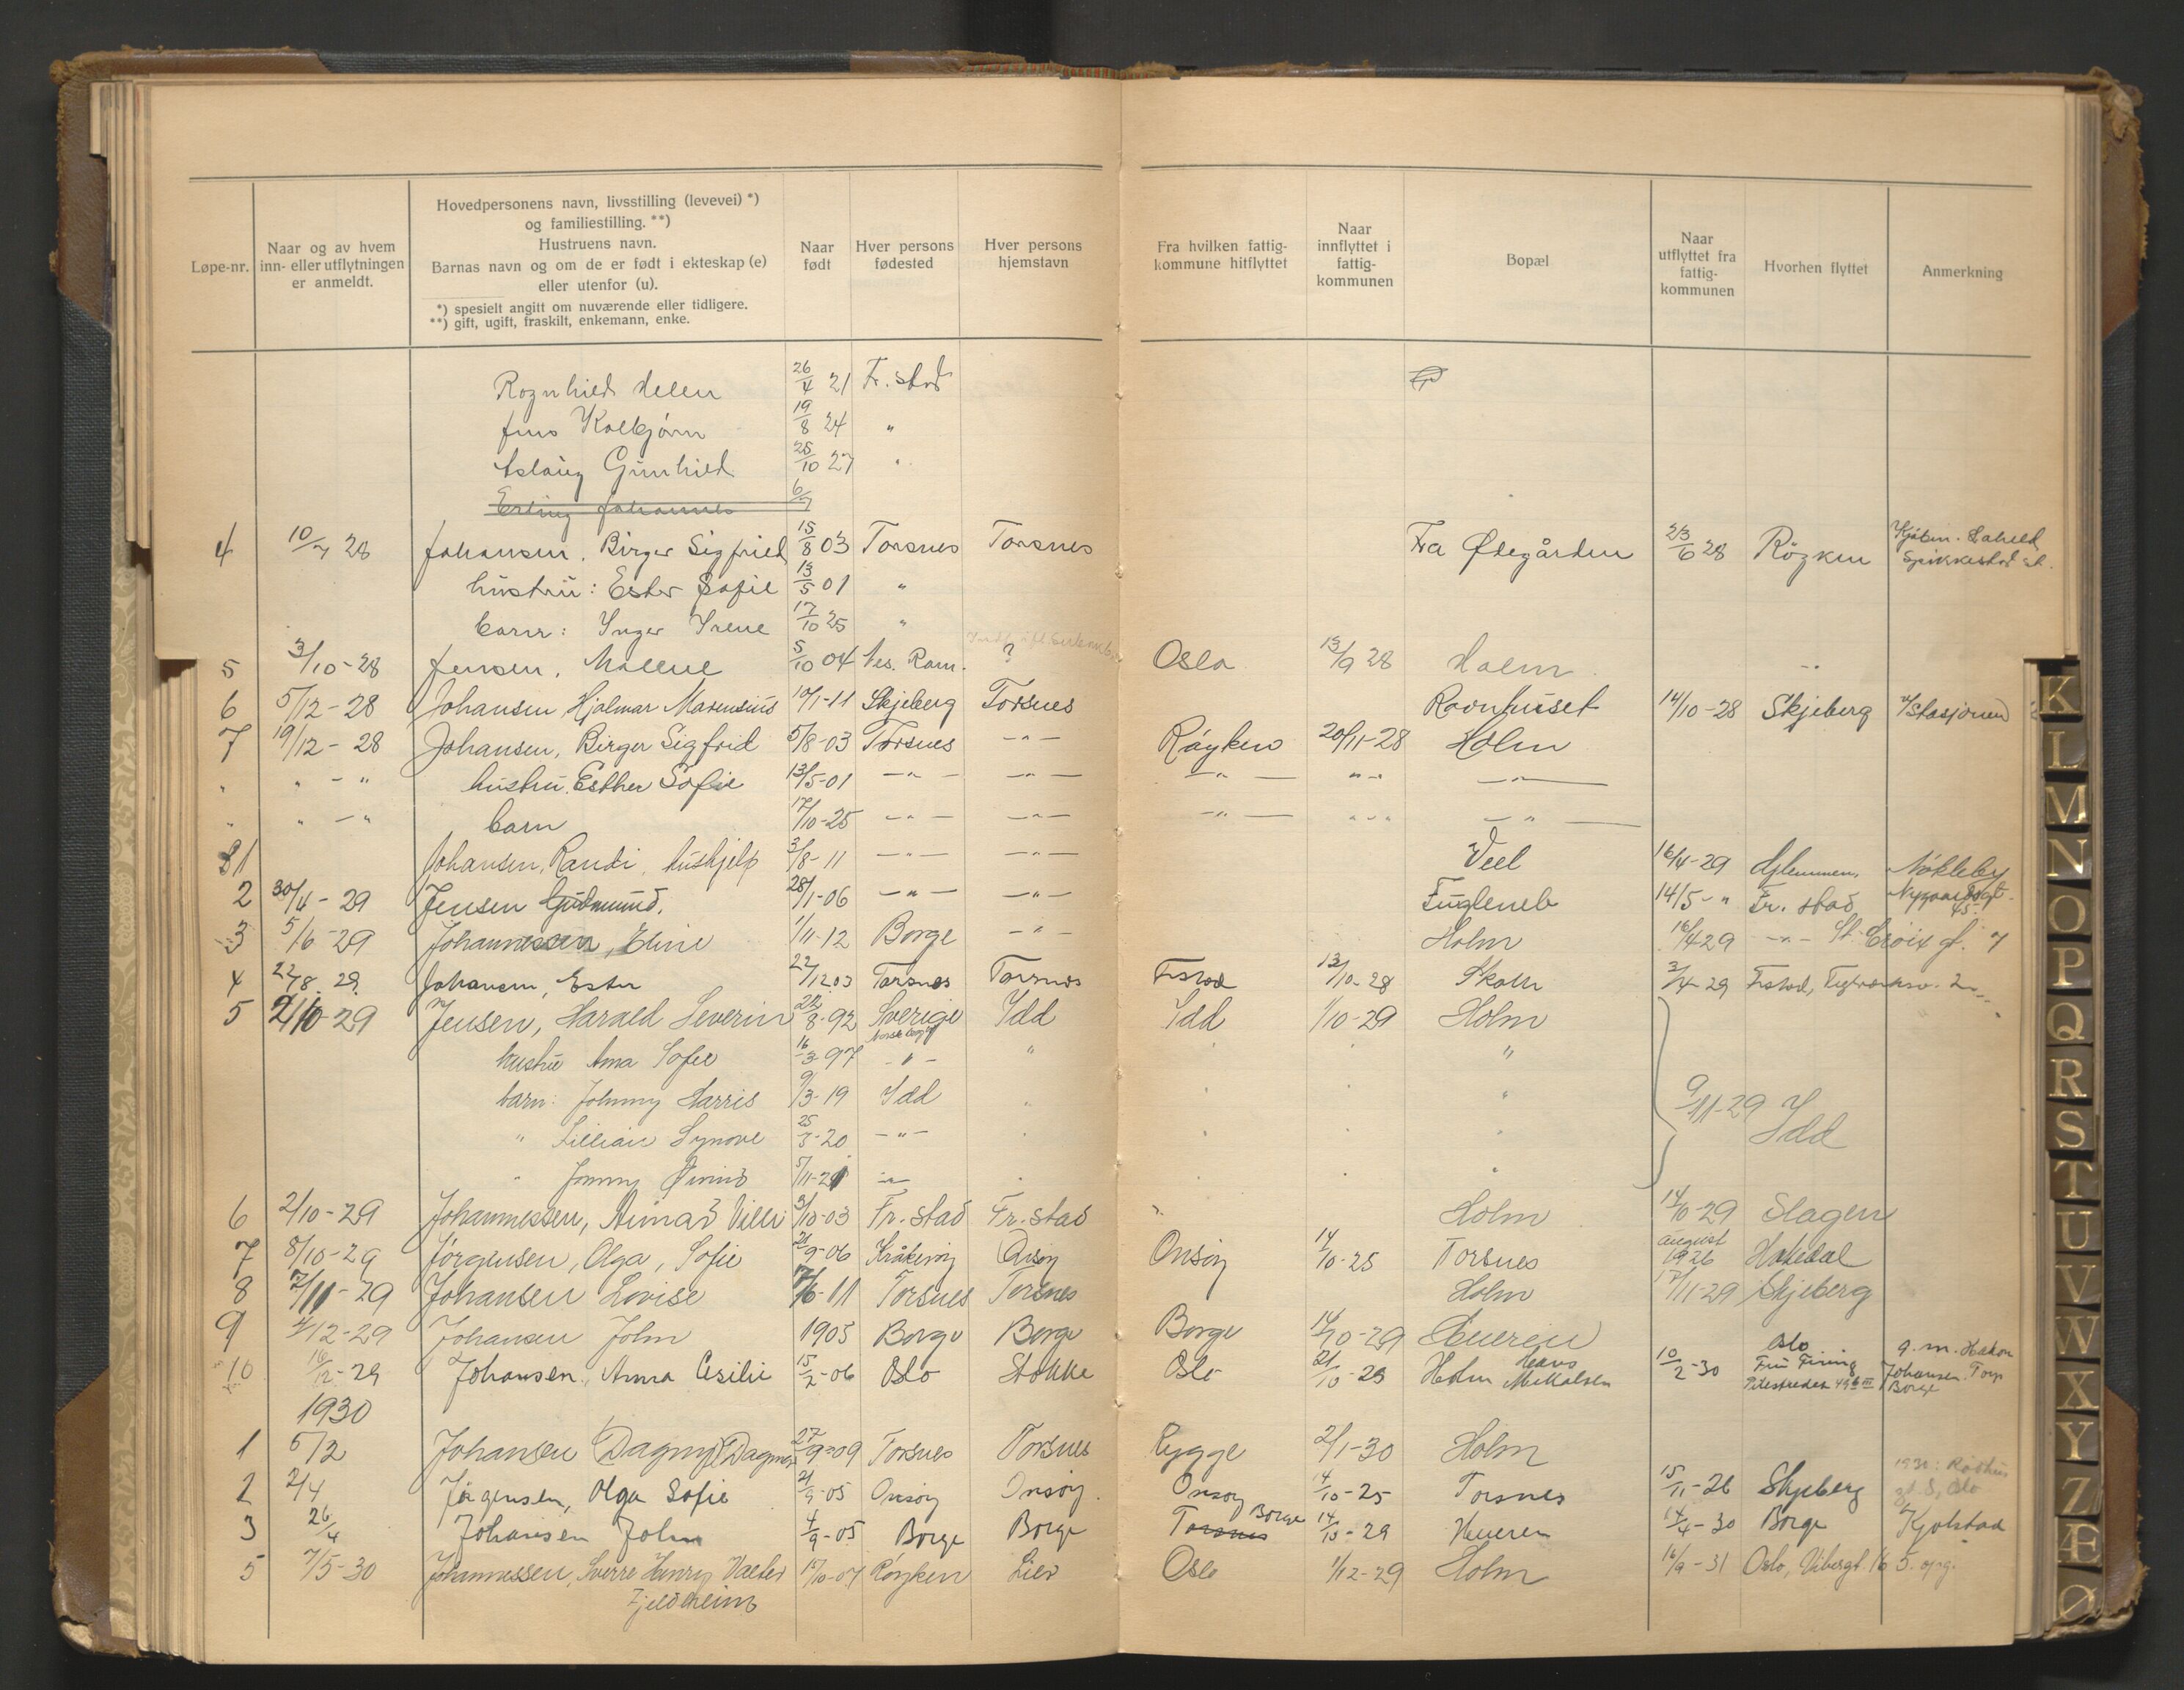 Løpe-nr.
Naar og av hvem
inn- eller utflytningen
er anmeldt.
Hovedpersonens navn, livsstilling (levevei) *)
og familiestilling. **)
Hustruens navn.
Barnas navn og om de er født i ekteskap (e)
eller utenfor (u).
*) spesielt angitt om nuværende eller tidligere.
**) gift, ugift, fraskilt, enkemann, enke.
Naar
født
Hver persons
fødested
Hver persons
hjemstavn
Fra hvilken fattig-
kommune hitflyttet
Naar
innflyttet i
fattig-
kommunen
Bopæl
Naar
utflyttet fra
fattig-
kommunen
Hvorhen flyttet
Anmerkning
Ragnhild Helen 26/4 21 Fr.stad
Jens Kolbjørn 19/8 24 "
Aslaug Gunhild 25/10 27 "
Erling Johannes 6/7
4 10/7 28 Johansen, Birger Sigfried 15/8 03 Torsnes Torsnes Fra Ødegården 23/6 28 Röyken Spikkestad st.
hustru: Ester Sofie 13/5 01 "
barn: Inger Irene 17/10 25 "
5 3/10-28 Jensen, Malene 5/10 04 Nes. Rom. ? Oslo 13/9 28 Holm
6 5/12-28 Johansen Hjalmar Marensius 10/1-11 Skjeberg Torsnes Ravnhuset 14/10-28 Skjeberg v/Stasjonen
7 19/12-28 Johansen, Birger Sigfrid 5/8-03 Torsnes -"- Røyken 20/11-28 Holm
" " - " hustru. Esther Sofie 13/5-01 -"- -"- -"- " " -"-
" " - " barn 17/10-25 -"- -"- -"- " " " -"-
1 Johansen, Randi, hushjelp 3/8-11 -"- -"- Veel 16/4-29 Glemmen, Nökleby
2 30/4-29 Jensen Gudmund. 28/1-06 -"- -"- Fugleneb 14/5-" Fr. stad Nygaardsgt. 45.
3 5/6-29 Johannessen, Eline 1/11-12 Borge -"- Holm 16/4 29 -"- St. Croix g. 7
4 22/8. 29. Johansen, Ester 22/12 03 Torsnes Torsnes Frstad 13/10-28 Skaen 3/4-29 Frstad,
5 2/10-29 Jensen, Harald Severin 22/8-92 Sverige Idd Idd 1/10-29 Holm
Norsk borger
hustru Anna Sofie 16/3-97 -"- " "
barn: Johnny Harris 9/3-19 Idd " " 9/11-29 Idd
" Lillian Synove 25/3-20 -"-
" Jonny Øivind 5/11-21 -"-
6 2/10-29 Johannessen, Aimar Villi 3/10-03 Fr.stad Fr.stad Holm 14/10-29 Slagen
7 8/10-29 Jörgensen, Olga, Sofie 21/9-06 Kråkerøy Onsöy Onsöy 14/10-25 Torsnes august 1926 Hakedal
8 12/11-29 Johansen Lovise 17/6-11 Torsnes Torsnes Holm 12/11-29 Skjeberg
9 4/12-29 Johansen John 1905 Borge Borge Borge 14/10-29 Hueren
10 16/12-29 Johansen, Anna Cesilie 15/2-06 Oslo Stokke Oslo 21/10-29 Holm Hans Mikkalsen 10/2-30 Oslo Fru Fining Pilestredet 49 b III g. m. Hakon Johansen Torp Borge
1930
1 6/2 Johansen Dagny (Dagmar) 27/9-09 Torsnes Torsnes Rygge 2/1-30 Holm
2 2/4 Jörgensen, Olga Sofie 21/9-05 Onsöy Onsöy. Onsøy 14/10-25 Torsnes 15/11-26 Skjeberg
3 26/4 Johansen John 4/9-05 Borge Borge Torsnes Borge 14/10-29 Hueren 14/4-30 Borge Kjølstad
5 7/5-30 Johannessen, Sverre Henry Valter 15/10-07 Röyken Lier Oslo 1/12-29 Holm 16/9-31 Oslo, Vibesgt. 16 5. opg.
Fjeldheim
K
L
M
N
O
P
Q
R
S
T
U
V
W
X
Y
Z
Æ
Ø